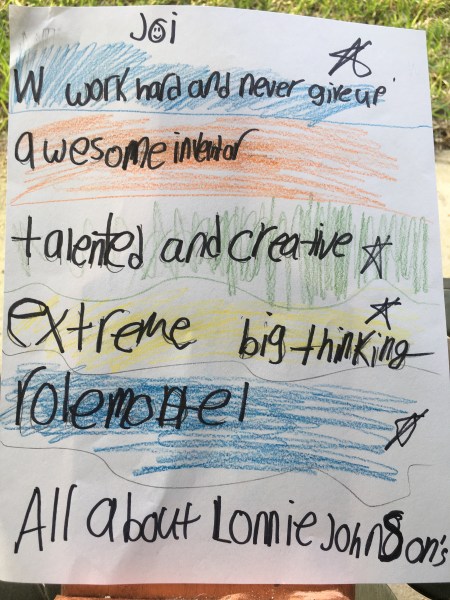 Joi
W work hard and never give up
awesome inventor
talented and creative
extreme big thinking
rolemodel
All about Lonnie Johnson's